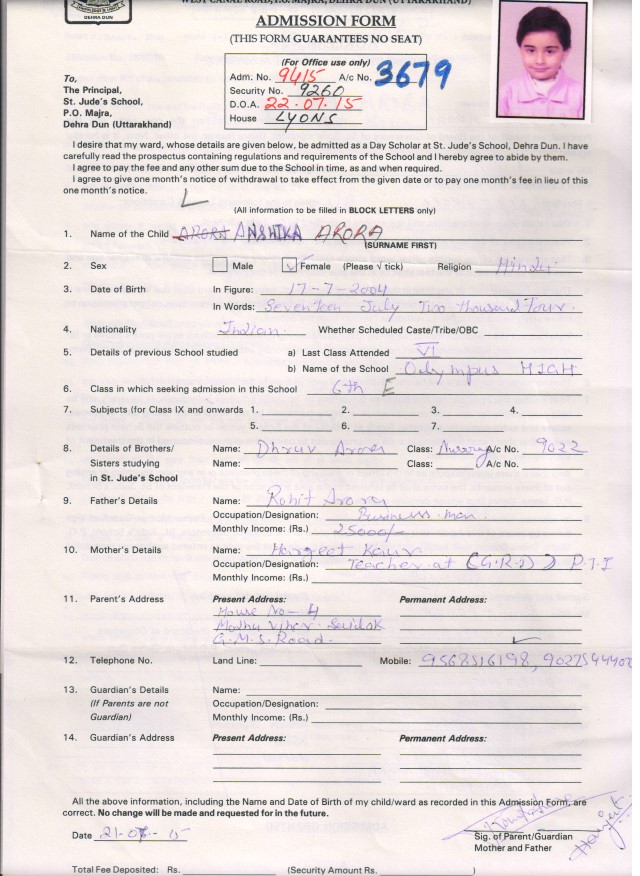 WEST CANAL ROAD, P.O. MAJRA, DEHRA DUN (UTTARAKHAND)
DEHRA DUN
ADMISSION FORM
(THIS FORM GUARANTEES NO SEAT)
(For Office use only)
Adm. No. 9415 A/c No. 3679
Security No. 9260
D.O.A. 22.07.15
House LYONS
To,
The Principal,
St. Jude's School,
P.O. Majra,
Dehra Dun (Uttarakhand)
I desire that my ward, whose details are given below, be admitted as a Day Scholar at St. Jude's School, Dehra Dun. I have
carefully read the prospectus containing regulations and requirements of the School and I hereby agree to abide by them.
I agree to pay the fee and any other sum due to the School in time, as and when required.
I agree to give one month's notice of withdrawal to take effect from the given date or to pay one month's fee in lieu of this
one month's notice.
(All information to be filled in BLOCK LETTERS only)
1. Name of the Child ARORA ANSHIKA ARORA
(SURNAME FIRST)
2. Sex Male Female (Please √ tick) Religion Hindu
3. Date of Birth In Figure: 17-7-2004
In Words: Seventeen July Two thousand four.
4. Nationality Indian. Whether Scheduled Caste/Tribe/OBC
5. Details of previous School studied a) Last Class Attended VI
b) Name of the School Olympus HIGH
6. Class in which seeking admission in this School 6th E
7. Subjects (for Class IX and onwards 1. 2. 3. 4.
5. 6. 7.
8. Details of Brothers/ Name: Dhruv Arora Class: Nursery A/c No. 9022
Sisters studying Name: Class: A/c No.
in St. Jude's School
9. Father's Details Name: Rohit Arora
Occupation/Designation: Business man.
Monthly Income: (Rs.) 25000/-
10. Mother's Details Name: Harpreet Kaur
Occupation/Designation: Teacher at (G.R.D) P.T.I
Monthly Income: (Rs.)
11. Parent's Address Present Address: Permanent Address:
House No-4
Madhu Vihar
G.M.S. Road.
12. Telephone No. Land Line: Mobile: 9568516198,
13. Guardian's Details Name:
(If Parents are not Occupation/Designation:
Guardian) Monthly Income: (Rs.)
14. Guardian's Address Present Address: Permanent Address:
All the above information, including the Name and Date of Birth of my child/ward as recorded in this Admission Form, are
correct. No change will be made and requested for in the future.
Date 21-07-15
Sig. of Parent/Guardian
Mother and Father
Total Fee Deposited: Rs. (Security Amount Rs. )